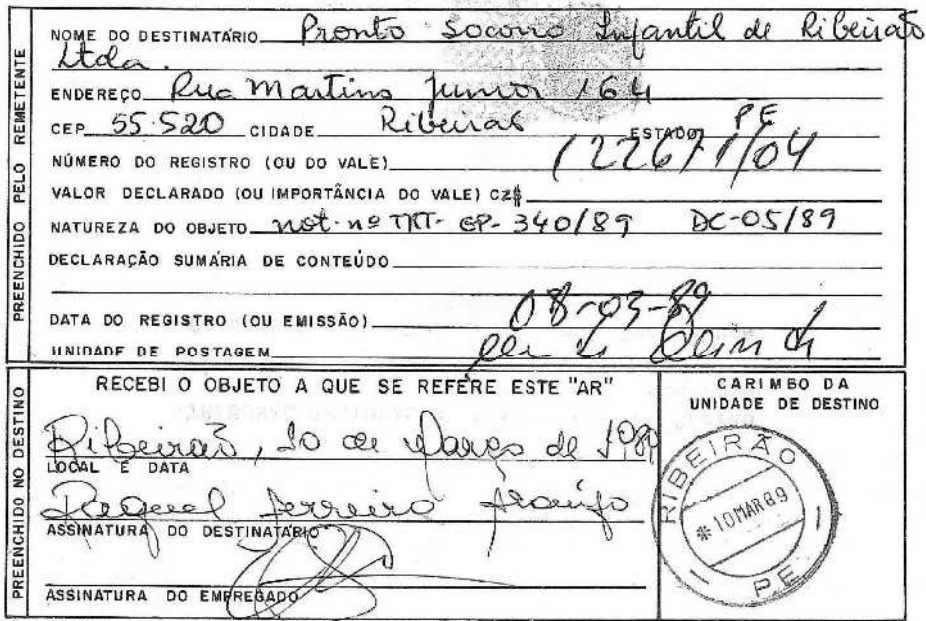 NOME DO DESTINATÁRIO Pronto Socorro Infantil de Ribeirão
Ltda.
ENDEREÇO Rua Martins Junior 164
CEP 55.520 CIDADE Ribeirão ESTADO PE
NÚMERO DO REGISTRO (OU DO VALE) 122671/04
VALOR DECLARADO (OU IMPORTÂNCIA DO VALE) CZ$
NATUREZA DO OBJETO not. nº TRT- GP- 340/89 DC-05/89
DECLARAÇÃO SUMÁRIA DE CONTEÚDO
DATA DO REGISTRO (OU EMISSÃO) 08-03-89
UNIDADE DE POSTAGEM
PREENCHIDO PELO REMETENTE
RECEBI O OBJETO A QUE SE REFERE ESTE "AR"
Ribeirão, 10 de Março de 1989
LOCAL E DATA
Raquel Ferreira Araújo
ASSINATURA DO DESTINATÁRIO
ASSINATURA DO EMPREGADO
PREENCHIDO NO DESTINO
CARIMBO DA
UNIDADE DE DESTINO
RIBEIRÃO
* 10 MAR 89
PE